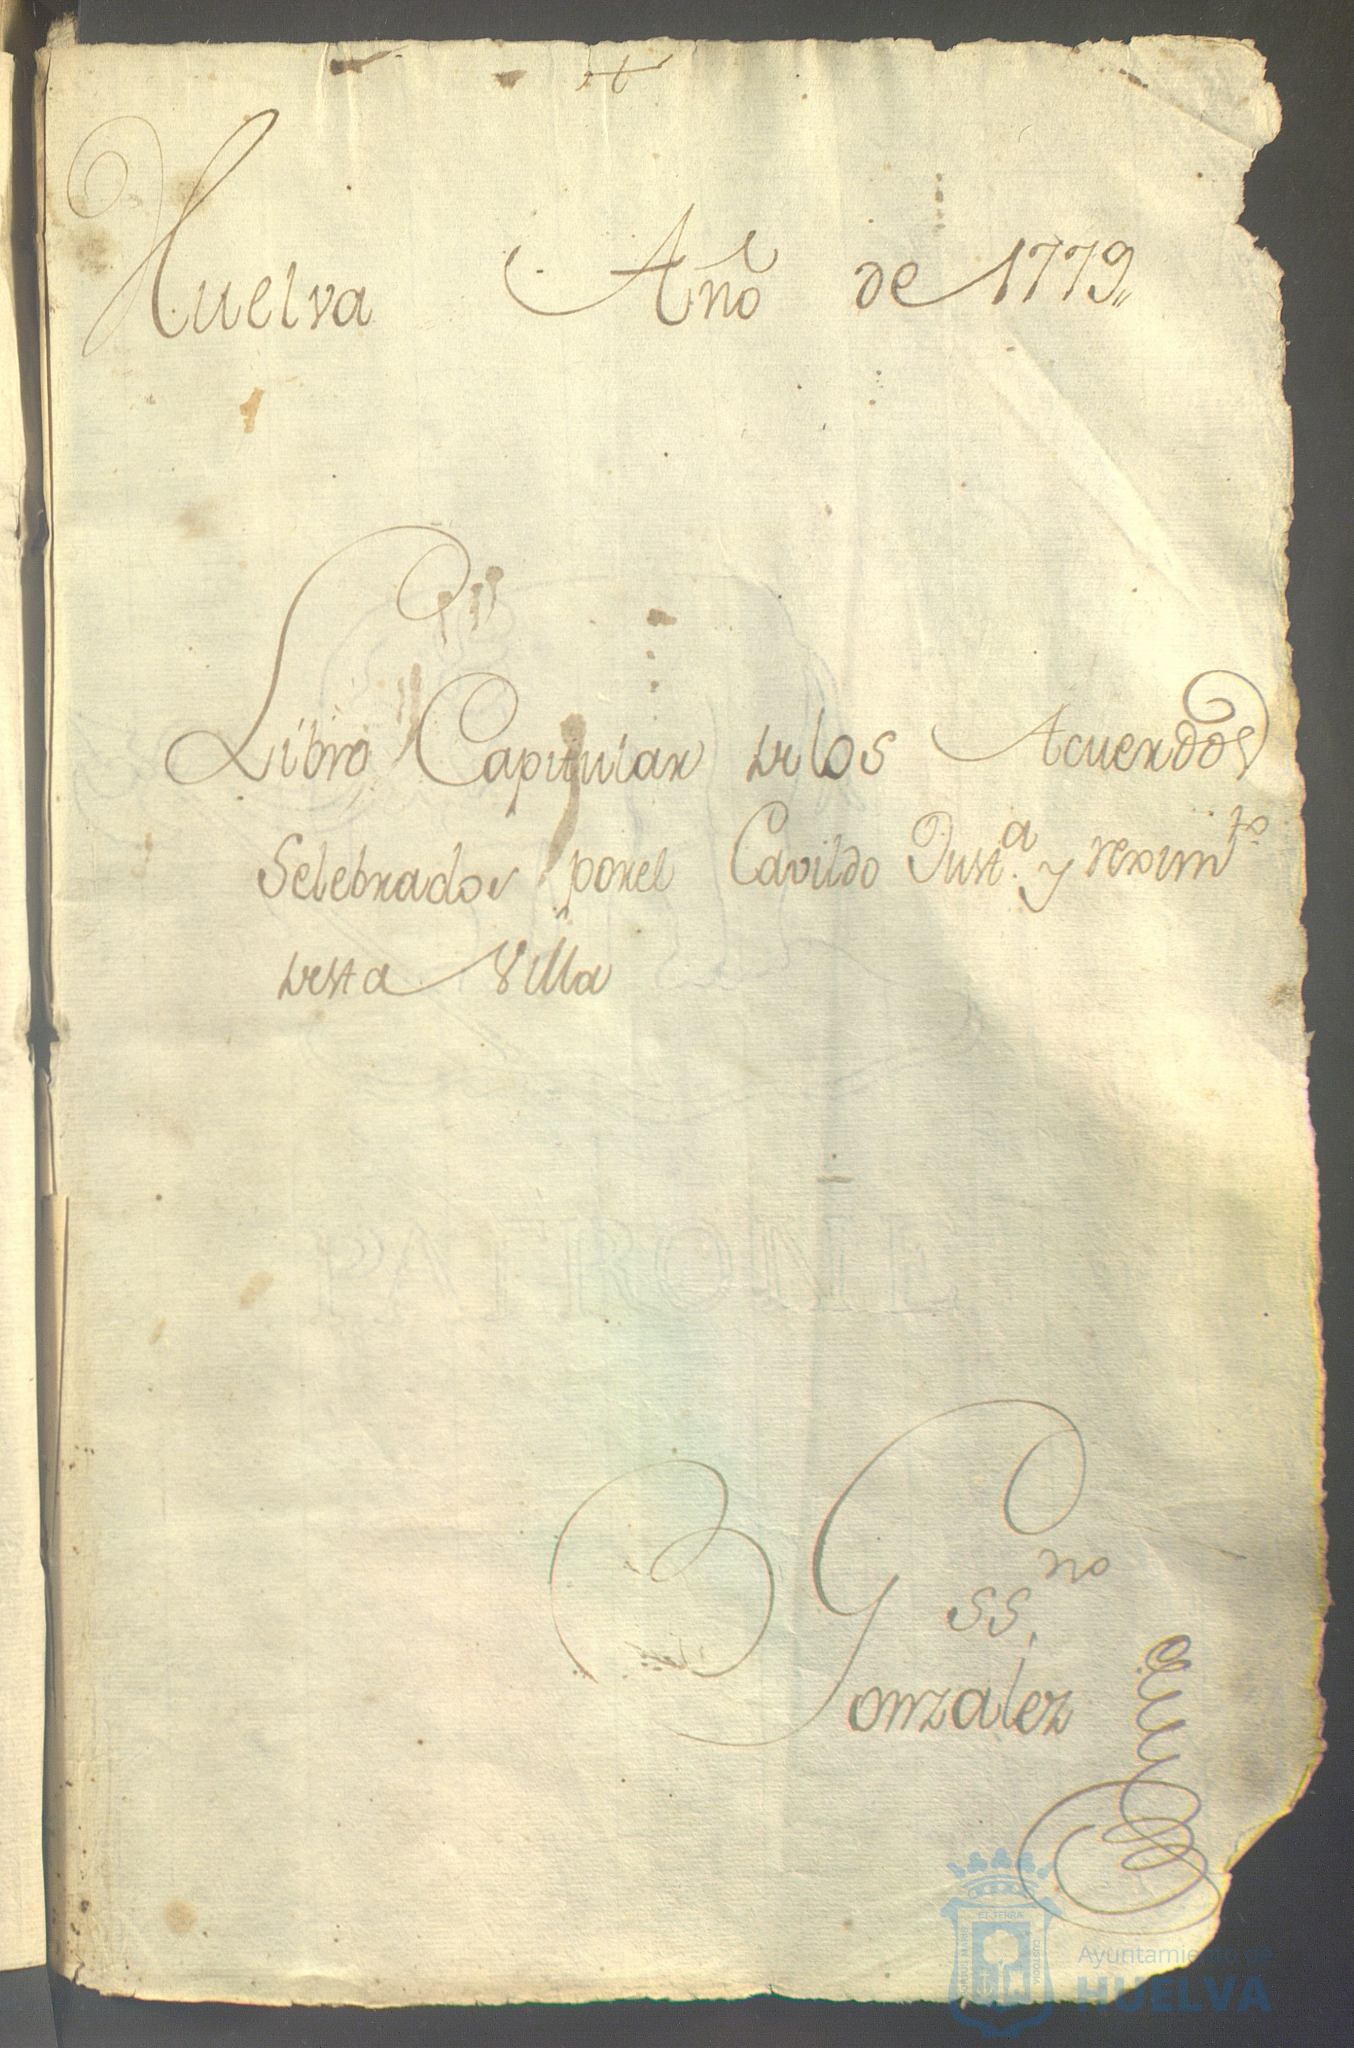 Huelva Año de 1779,,
Libro Capitular de los Acuerdos
Selebrados por el Cavildo Just.ª y reximto
desta Villa
ssno
Gonzalez
PATRONE
Ayuntamiento de
HUELVA